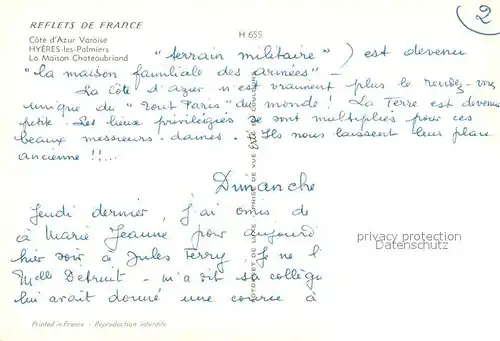 REFLETS DE FRANCE
H 655
2
Côte d'Azur Varoise
HYÈRES-les-Palmiers
La Maison Chateaubriand
"terrain militaire") est devenu
"la maison familiale des armées" -
La Côte d'Azur n'est vraiment plus le rendez-vous
unique du "Tout Paris" du monde ! La Terre est devenue
petite. Les lieux privilégiés se sont multipliés pour ces
beaux messieurs-dames. Ils nous laissent leur place
ancienne !!...
Dimanche
Jeudi dernier, j'ai omis de
à Marie Jeanne pour aujourd
hier soir à Jules Ferry. Je ne l
Melle Detruit - m'a dit sa collègue
lui avait donné une course à
privacy protection
Datenschutz
Printed in France - Reproduction interdite